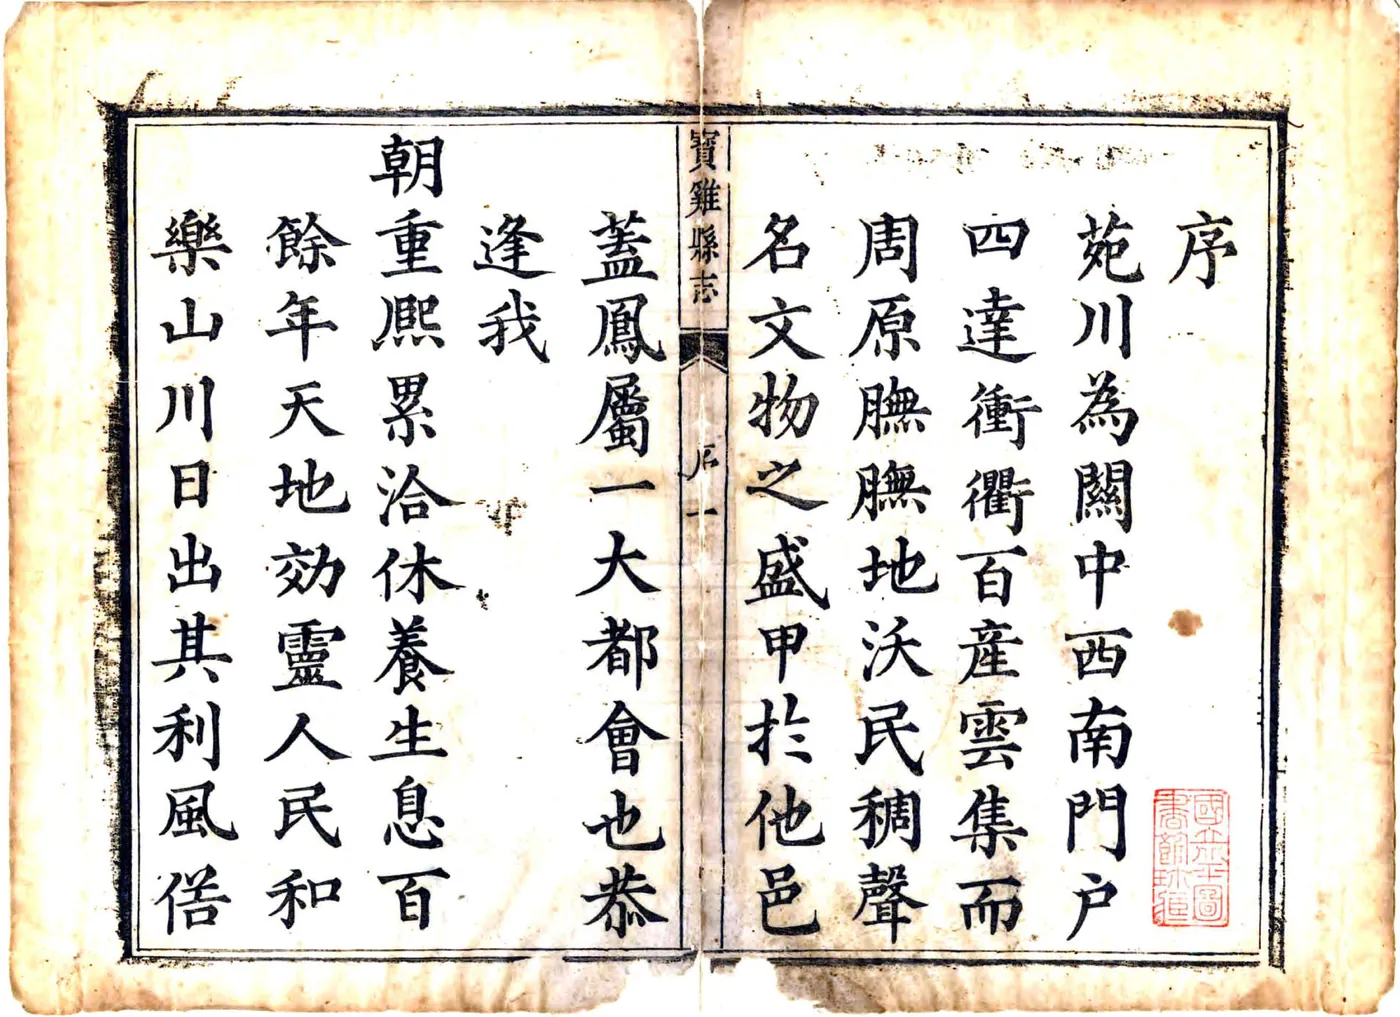 序
苑川為關中西南門户
四達衝衢百産雲集而
周原膴膴地沃民稠聲
名文物之盛甲於他邑
寶雞縣志
序
一
蓋鳳屬一大都會也恭
逢我
朝重熈累洽休養生息百
餘年天地効靈人民和
樂山川日出其利風俗
國立北平圖
書館珍藏